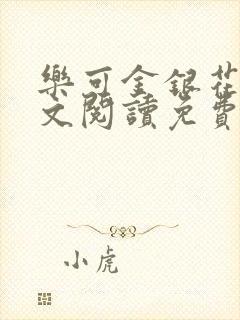 樂可金銀花
文閱讀免費
小虎